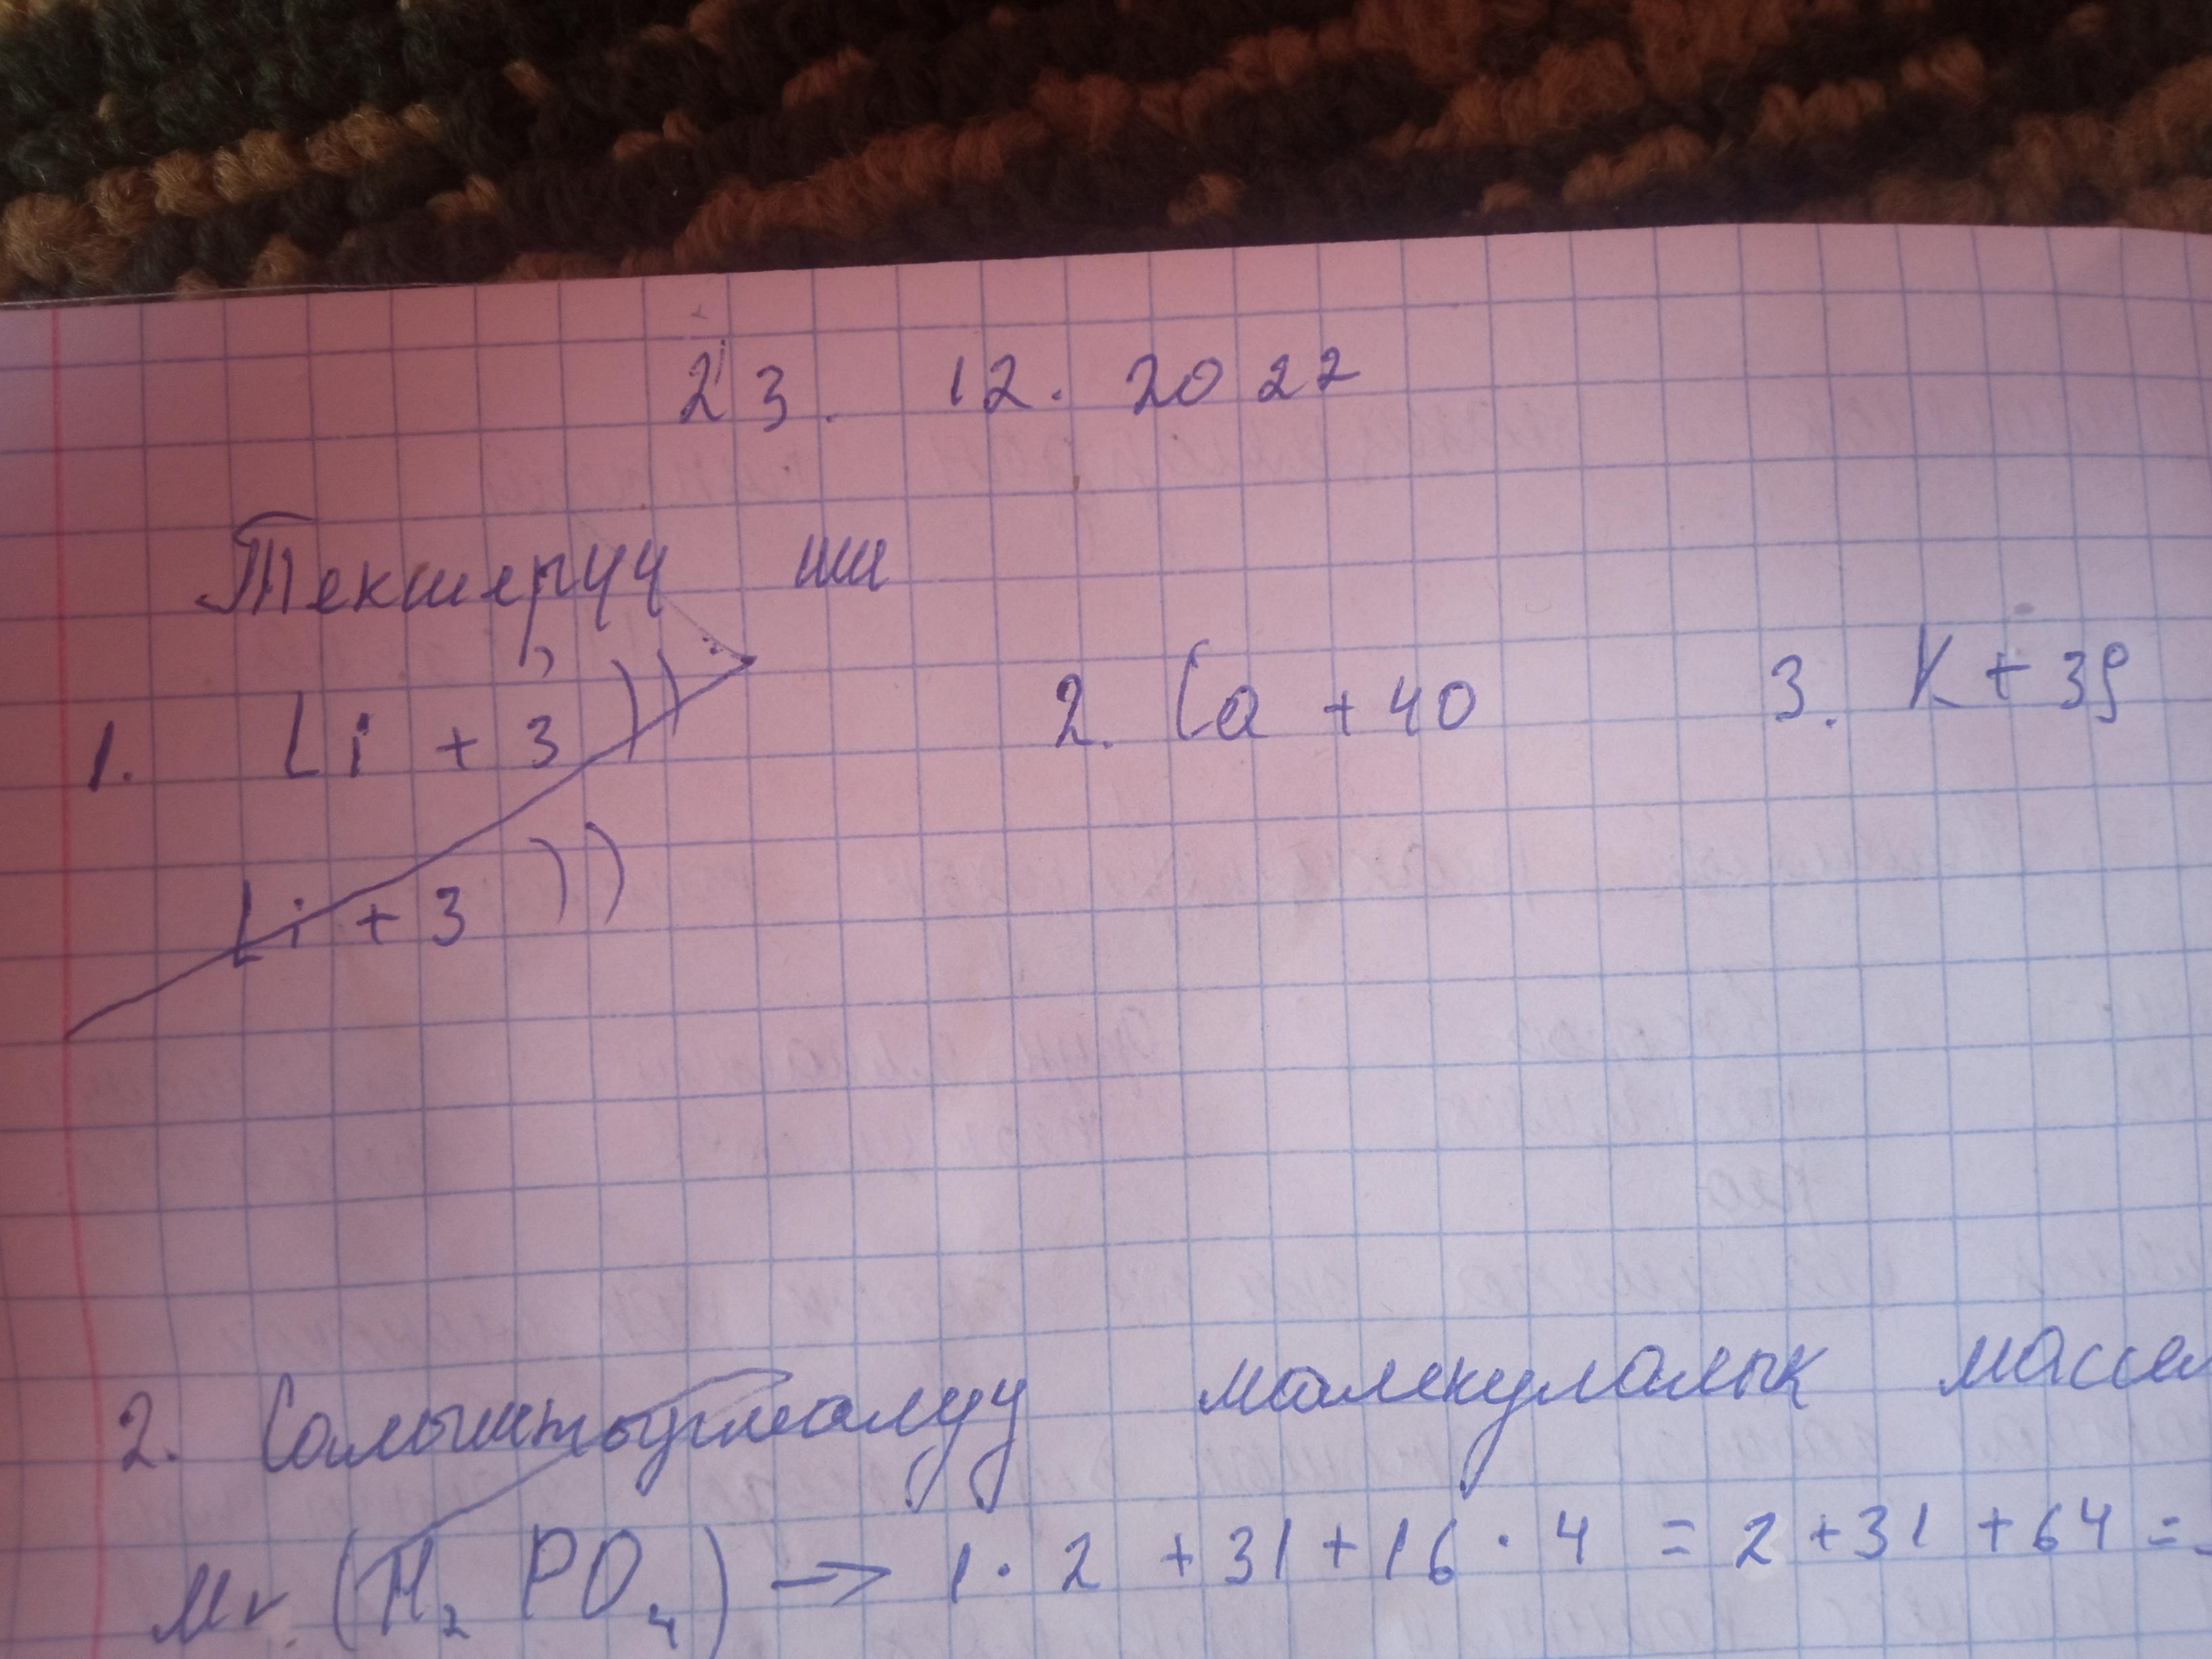 23. 12. 2022
Текшерүү иш
1. Li + 3 )) 2. Ca + 40 3. K + 39
Li + 3 ))
2. Салыштырмалуу малекулалык масса
Mr. (H₂ PO₄) —> 1 · 2 + 31 + 16 · 4 = 2 + 31 + 64 =